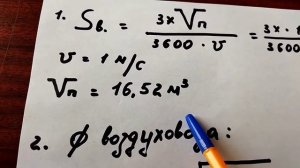 1. Sв. = 3 x Vп / 3600 · υ = 3 x
υ = 1 м/с
Vп = 16,52 м³
2. ϕ воздуховода :